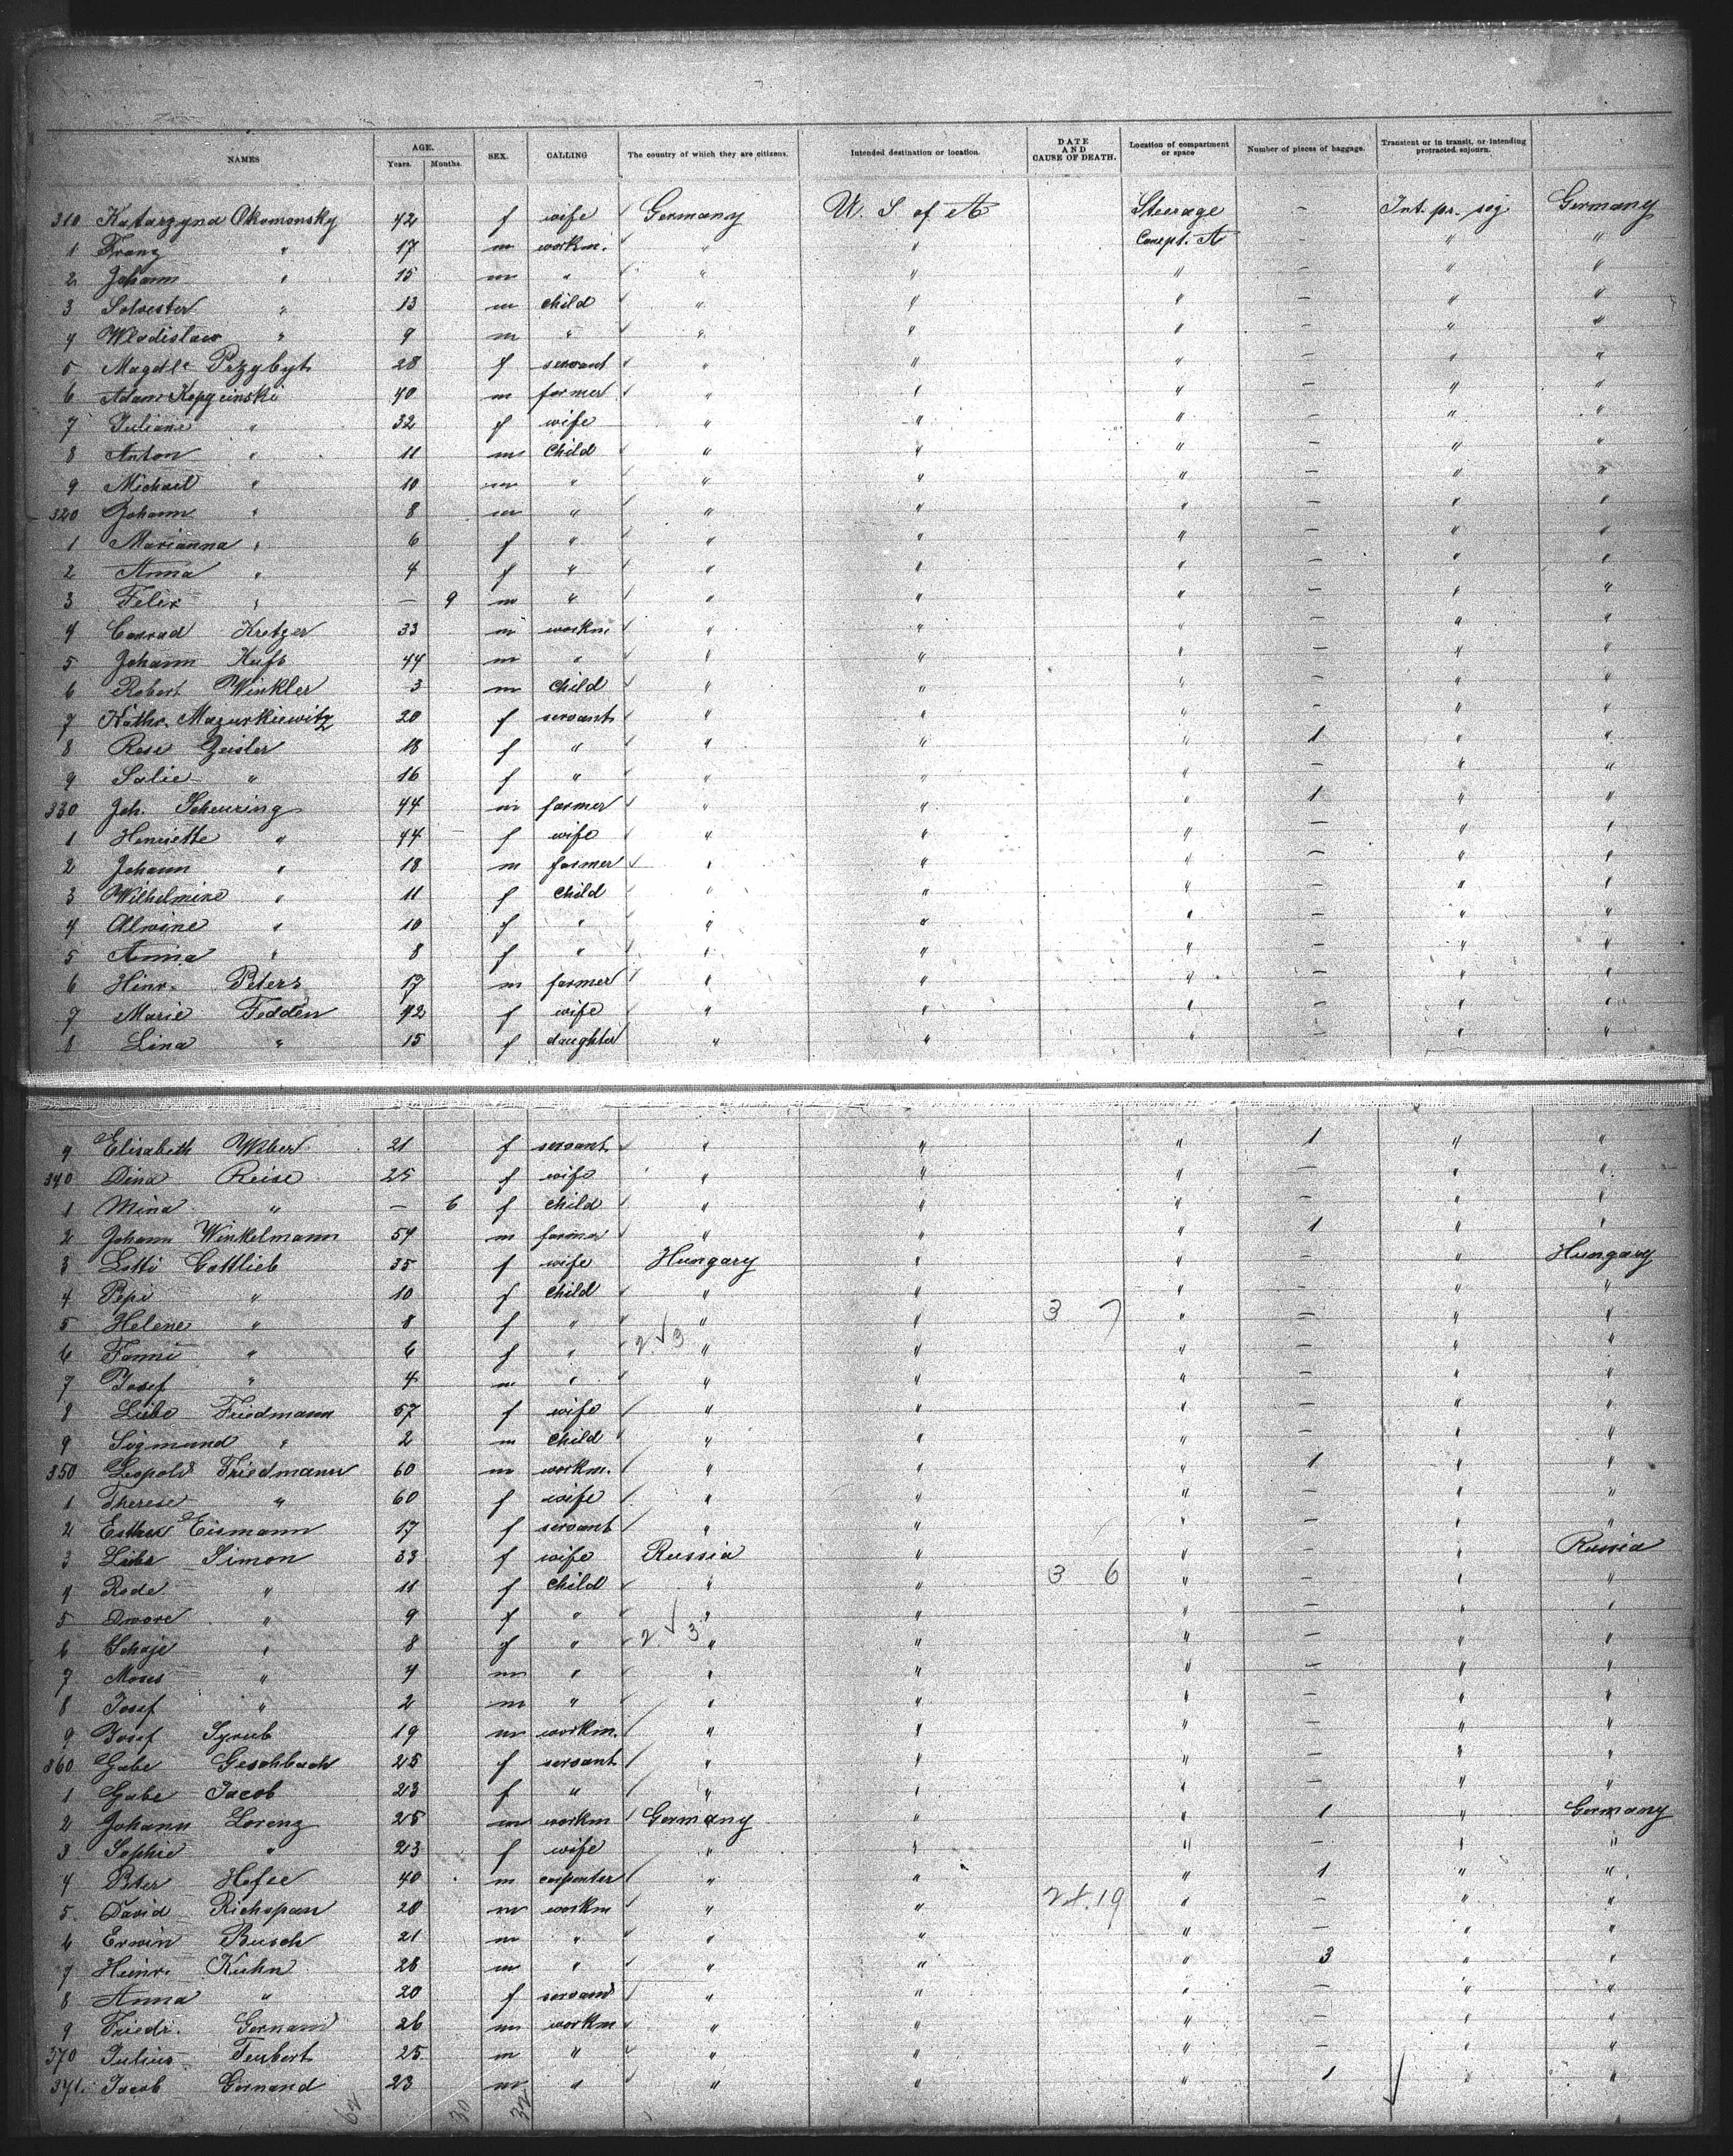 NAMES AGE. Years. Months. SEX. CALLING The country of which they are citizens. Intended destination or location. DATE AND CAUSE OF DEATH. Location of compartment or space Number of pieces of baggage. Transient or in transit, or intending protracted sojourn.
310 Katarzyna Okomonsky 42 f wife Germany U. S of A Steerage — Int. pr. soj. Germany
1 Franz " 17 m workm. " " Compt. A — " "
2 Johann " 15 m " " " " — " "
3 Silvester " 13 m child " " " — " "
4 Wladislaw " 9 m " " " " — " "
5 Magdle Przybyt 28 f servant " " " — " "
6 Adam Kopycinski 40 m farmer " " " — " "
7 Juliane " 32 f wife " " " — " "
8 Anton " 11 m child " " " — " "
9 Michael " 10 m " " " " — " "
320 Johann " 8 m " " " " — " "
1 Marianna " 6 f " " " " — " "
2 Anna " 4 f " " " " — " "
3 Felix " — 9 m " " " " — " "
4 Conrad Kretzer 33 m workm " " " — " "
5 Johann Kufs 44 m " " " " — " "
6 Robert Winkler 3 m child " " " — " "
7 Kathr. Mazurkiewitz 20 f servant " " " — " "
8 Rose Zeisler 18 f " " " " 1 " "
9 Salie " 16 f " " " " — " "
330 Joh. Scheuring 44 m farmer " " " 1 " "
1 Henriette " 44 f wife " " " — " "
2 Johann " 18 m farmer " " " — " "
3 Wilhelmine " 11 f child " " " — " "
4 Alwine " 10 f " " " " — " "
5 Anna " 8 f " " " " — " "
6 Hinr. Peters 17 m farmer " " " — " "
7 Marie Fedden 42 f wife " " " — " "
8 Lina " 15 f daughter " " " — " "
9 Elisabeth Weber 21 f servant " " " 1 " "
340 Dina Reise 25 f wife " " " — " "
1 Mina " — 6 f child " " " — " "
2 Johann Winkelmann 54 m farmer " " " 1 " "
3 Lotti Gottlieb 35 f wife Hungary " " — " Hungary
4 Pepi " 10 f child " " " — " "
5 Helene " 8 f " " " 3 7 " — " "
6 Fanni " 6 f " 2 3 " " " — " "
7 Josef " 4 m " " " " — " "
8 Liebe Friedmann 57 f wife " " " — " "
9 Sigmund " 2 m child " " " — " "
350 Leopold Friedmann 60 m workm. " " " 1 " "
1 Therese " 60 f wife " " " — " "
2 Esther Eismann 17 f servant " " " — " "
3 Liebe Simon 33 f wife Russia " " — " Russia
4 Rode " 11 f child " " 3 6 " — " "
5 Dwore " 9 f " " " " — " "
6 Schaje " 8 f " 2 3 " " " — " "
7 Moses " 4 m " " " " — " "
8 Josef " 2 m " " " " — " "
9 Josef Syrub 19 m workm. " " " — " "
360 Gube Geschbach 25 f servant " " " — " "
1 Gube Jacob 23 f " " " " — " "
2 Johann Lorenz 25 m workm Germany " " 1 " Germany
3 Sophie " 23 f wife " " " — " "
4 Peter Hefee 40 m carpenter " " " 1 " "
5 David Richspan 20 m workm " " 2 19 " — " "
6 Erwin Busch 21 m " " " " — " "
7 Heinr. Kuhn 28 m " " " " 3 " "
8 Anna " 20 f servand " " " — " "
9 Friedr. Gernand 26 m workm " " " — " "
370 Julius Teubert 25 m " " " " — " "
371 Jacob Gernand 23 m " " " " 1 " "
62 30 32